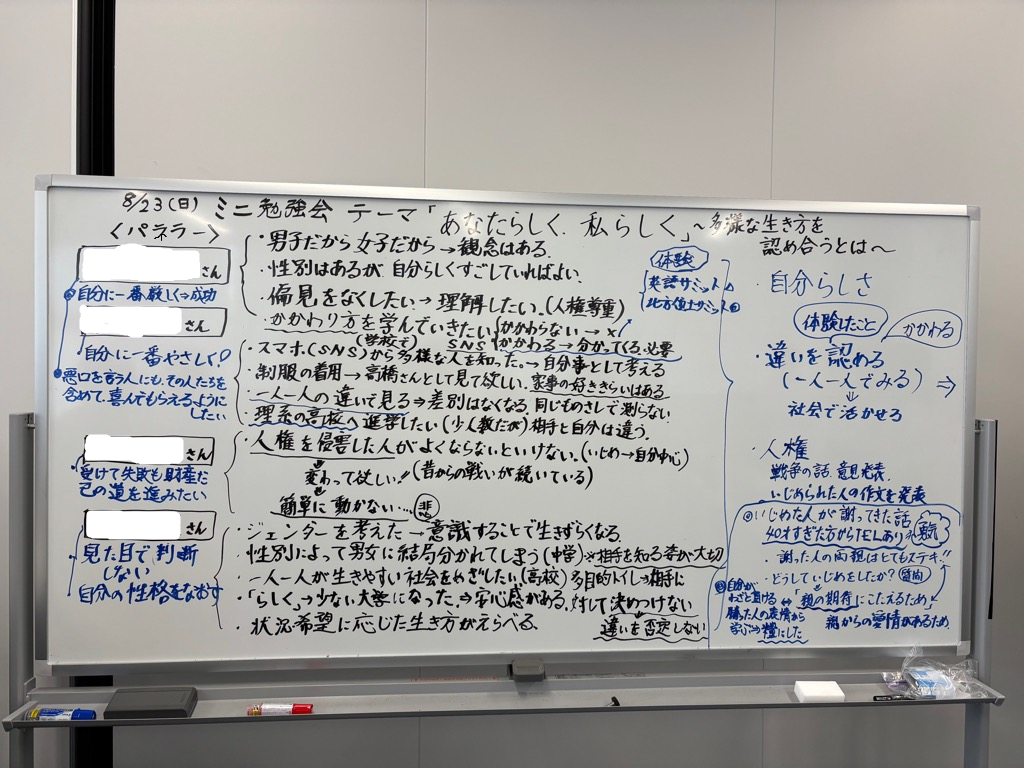 8/23(日) ミニ勉強会 テーマ「あなたらしく. 私らしく」〜多様な生き方を
認め合うとは〜
<パネラー>
さん
自分に一番厳しく→成功
さん
自分に一番やさしく!
悪口を言う人にも、その人たちを
含めて、喜んでもらえるように
したい
さん
受けて失敗も財産だ
己の道を進みたい
さん
・見た目で判断
しない
自分の性格をなおす
・男子だから女子だから→観念はある.
・性別はあるが自分らしくすごしていればよい.
・偏見をなくしたい→理解したい.(人権尊重)
・かかわり方を学んでいきたい
かかわらない→×
(学校で)
SNS かかわる→分かってくる.必要
・スマホ.(SNS)から多様な人を知った。→自分事として考える
・制服の着用→高橋さんとして見て欲しい. 家事の好ききらいはある
・一人一人の違いで見る⇒差別はなくなる. 同じものさしで測らない
・理系の高校へ進学したい(少人数だが)相手と自分は違う.
・人権を侵害した人がよくならないといけない.(いじめ→自分中心)
変わって欲しい!!(昔からの戦いが続いている)
簡単に動かない…悲
・ジェンダーを考えた→意識することで生きずらくなる.
・性別によって男女に結局分かれてしまう(中学)※相手を知る姿が大切
・一人一人が生きやすい社会をめざしたい(高校)多目的トイレ→相手に
・「らしく」→少ない大学になった.⇒安心感がある. 対して決めつけない
・状況希望に応じた生き方がえらべる.
違いを否定しない
体験
英語サミット
北方領土サミット
・自分らしさ
体験したこと
かかわる
・違いを認める
(一人一人でみる) ⇒
社会で活かせる
・人権
戦争の話 意見発表.
いじめられた人の作文を発表
いじめた人が謝ってきた話
40才すぎた方からTELあり
勇気
・謝った人の両親はとてもステキ!!
・どうしていじめをしたか? 質問
「親の期待にこたえるため」
親からの愛情があるため.
自分が
わざと負ける
勝った人の表情から
学ぶ→糧にした